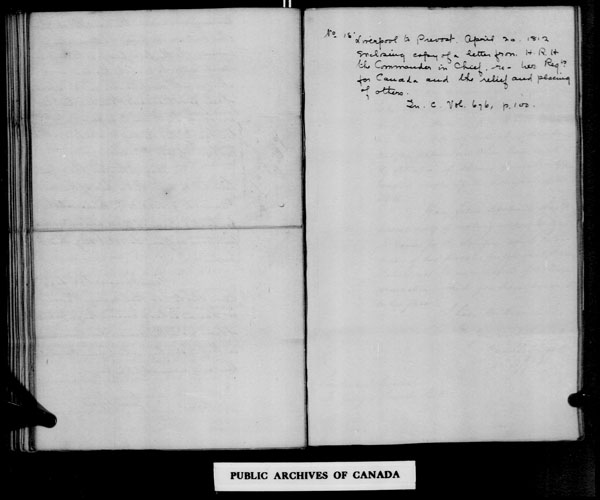 No 15. Liverpool to Prevost. April 20. 1812
Enclosing copy of a letter from H.R.H
the Commander in Chief. re- Regts
for Canada and the relief and placing
of others.
In. C. Vol. 676, p. 100.
PUBLIC ARCHIVES OF CANADA